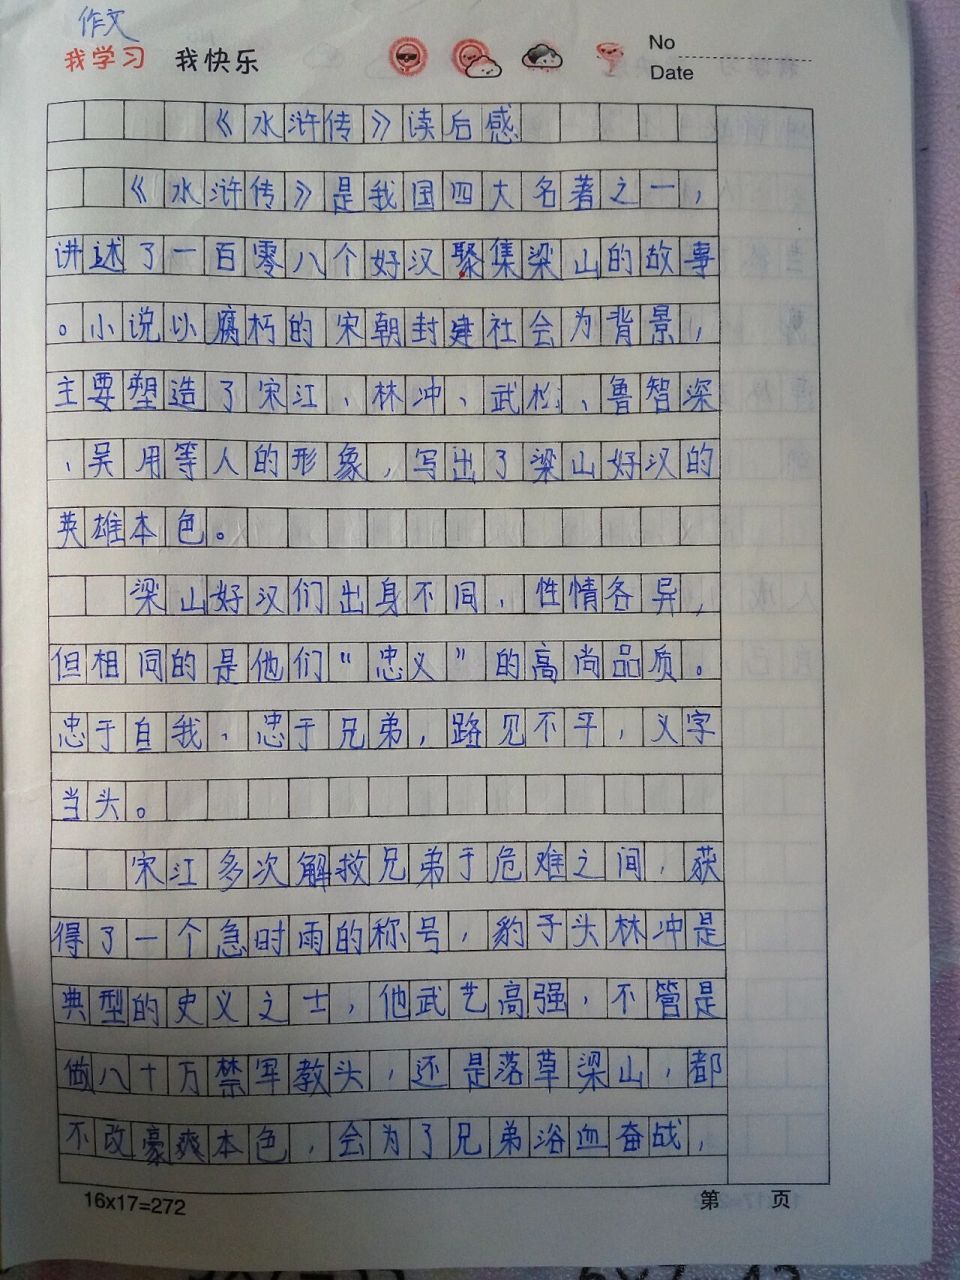 作文
我学习 我快乐
No
Date
《水浒传》读后感
《水浒传》是我国四大名著之一，
讲述了一百零八个好汉聚集梁山的故事
。小说以腐朽的宋朝封建社会为背景，
主要塑造了宋江、林冲、武松、鲁智深
、吴用等人的形象，写出了梁山好汉的
英雄本色。
梁山好汉们出身不同，性情各异，
但相同的是他们“忠义”的高尚品质。
忠于自我，忠于兄弟，路见不平，义字
当头。
宋江多次解救兄弟于危难之间，获
得了一个急时雨的称号，豹子头林冲是
典型的史义之士，他武艺高强，不管是
做八十万禁军教头，还是落草梁山，都
不改豪爽本色，会为了兄弟浴血奋战，
16x17=272
第 页